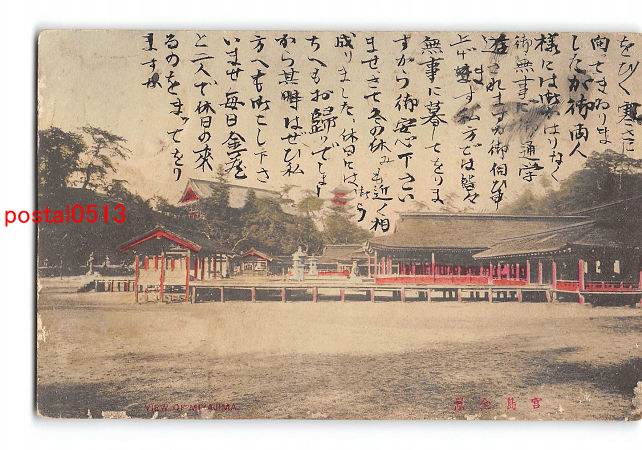 をひく寒さに
向ってまゐりま
したが御両人
様には
御無事に御通学
遊されますか御伺ひ申
上ます私方では皆々
無事に暮してをりま
すから御安心下さい
ませさて冬の休みも近く相
成りました休日には
ちへもお歸りでしょ
から其時はぜひ私
方へも御こし下さ
いませ毎日金屋
と二人で休日の来
るのをまってをり
ます
postal0513
VIEW OF MIYAJIMA.
宮島全景